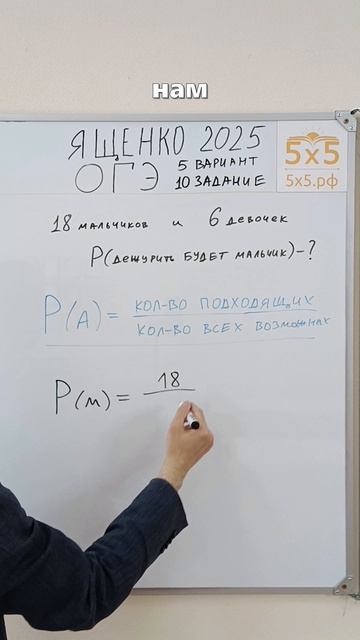 нам
ЯЩЕНКО 2025
ОГЭ
5 ВАРИАНТ
10 ЗАДАНИЕ
5x5
5x5.рф
18 мальчиков и 6 девочек
P(дежурить будет мальчик)-?
P(A) = кол-во подходящих
кол-во всех возможных
P(м) = 18